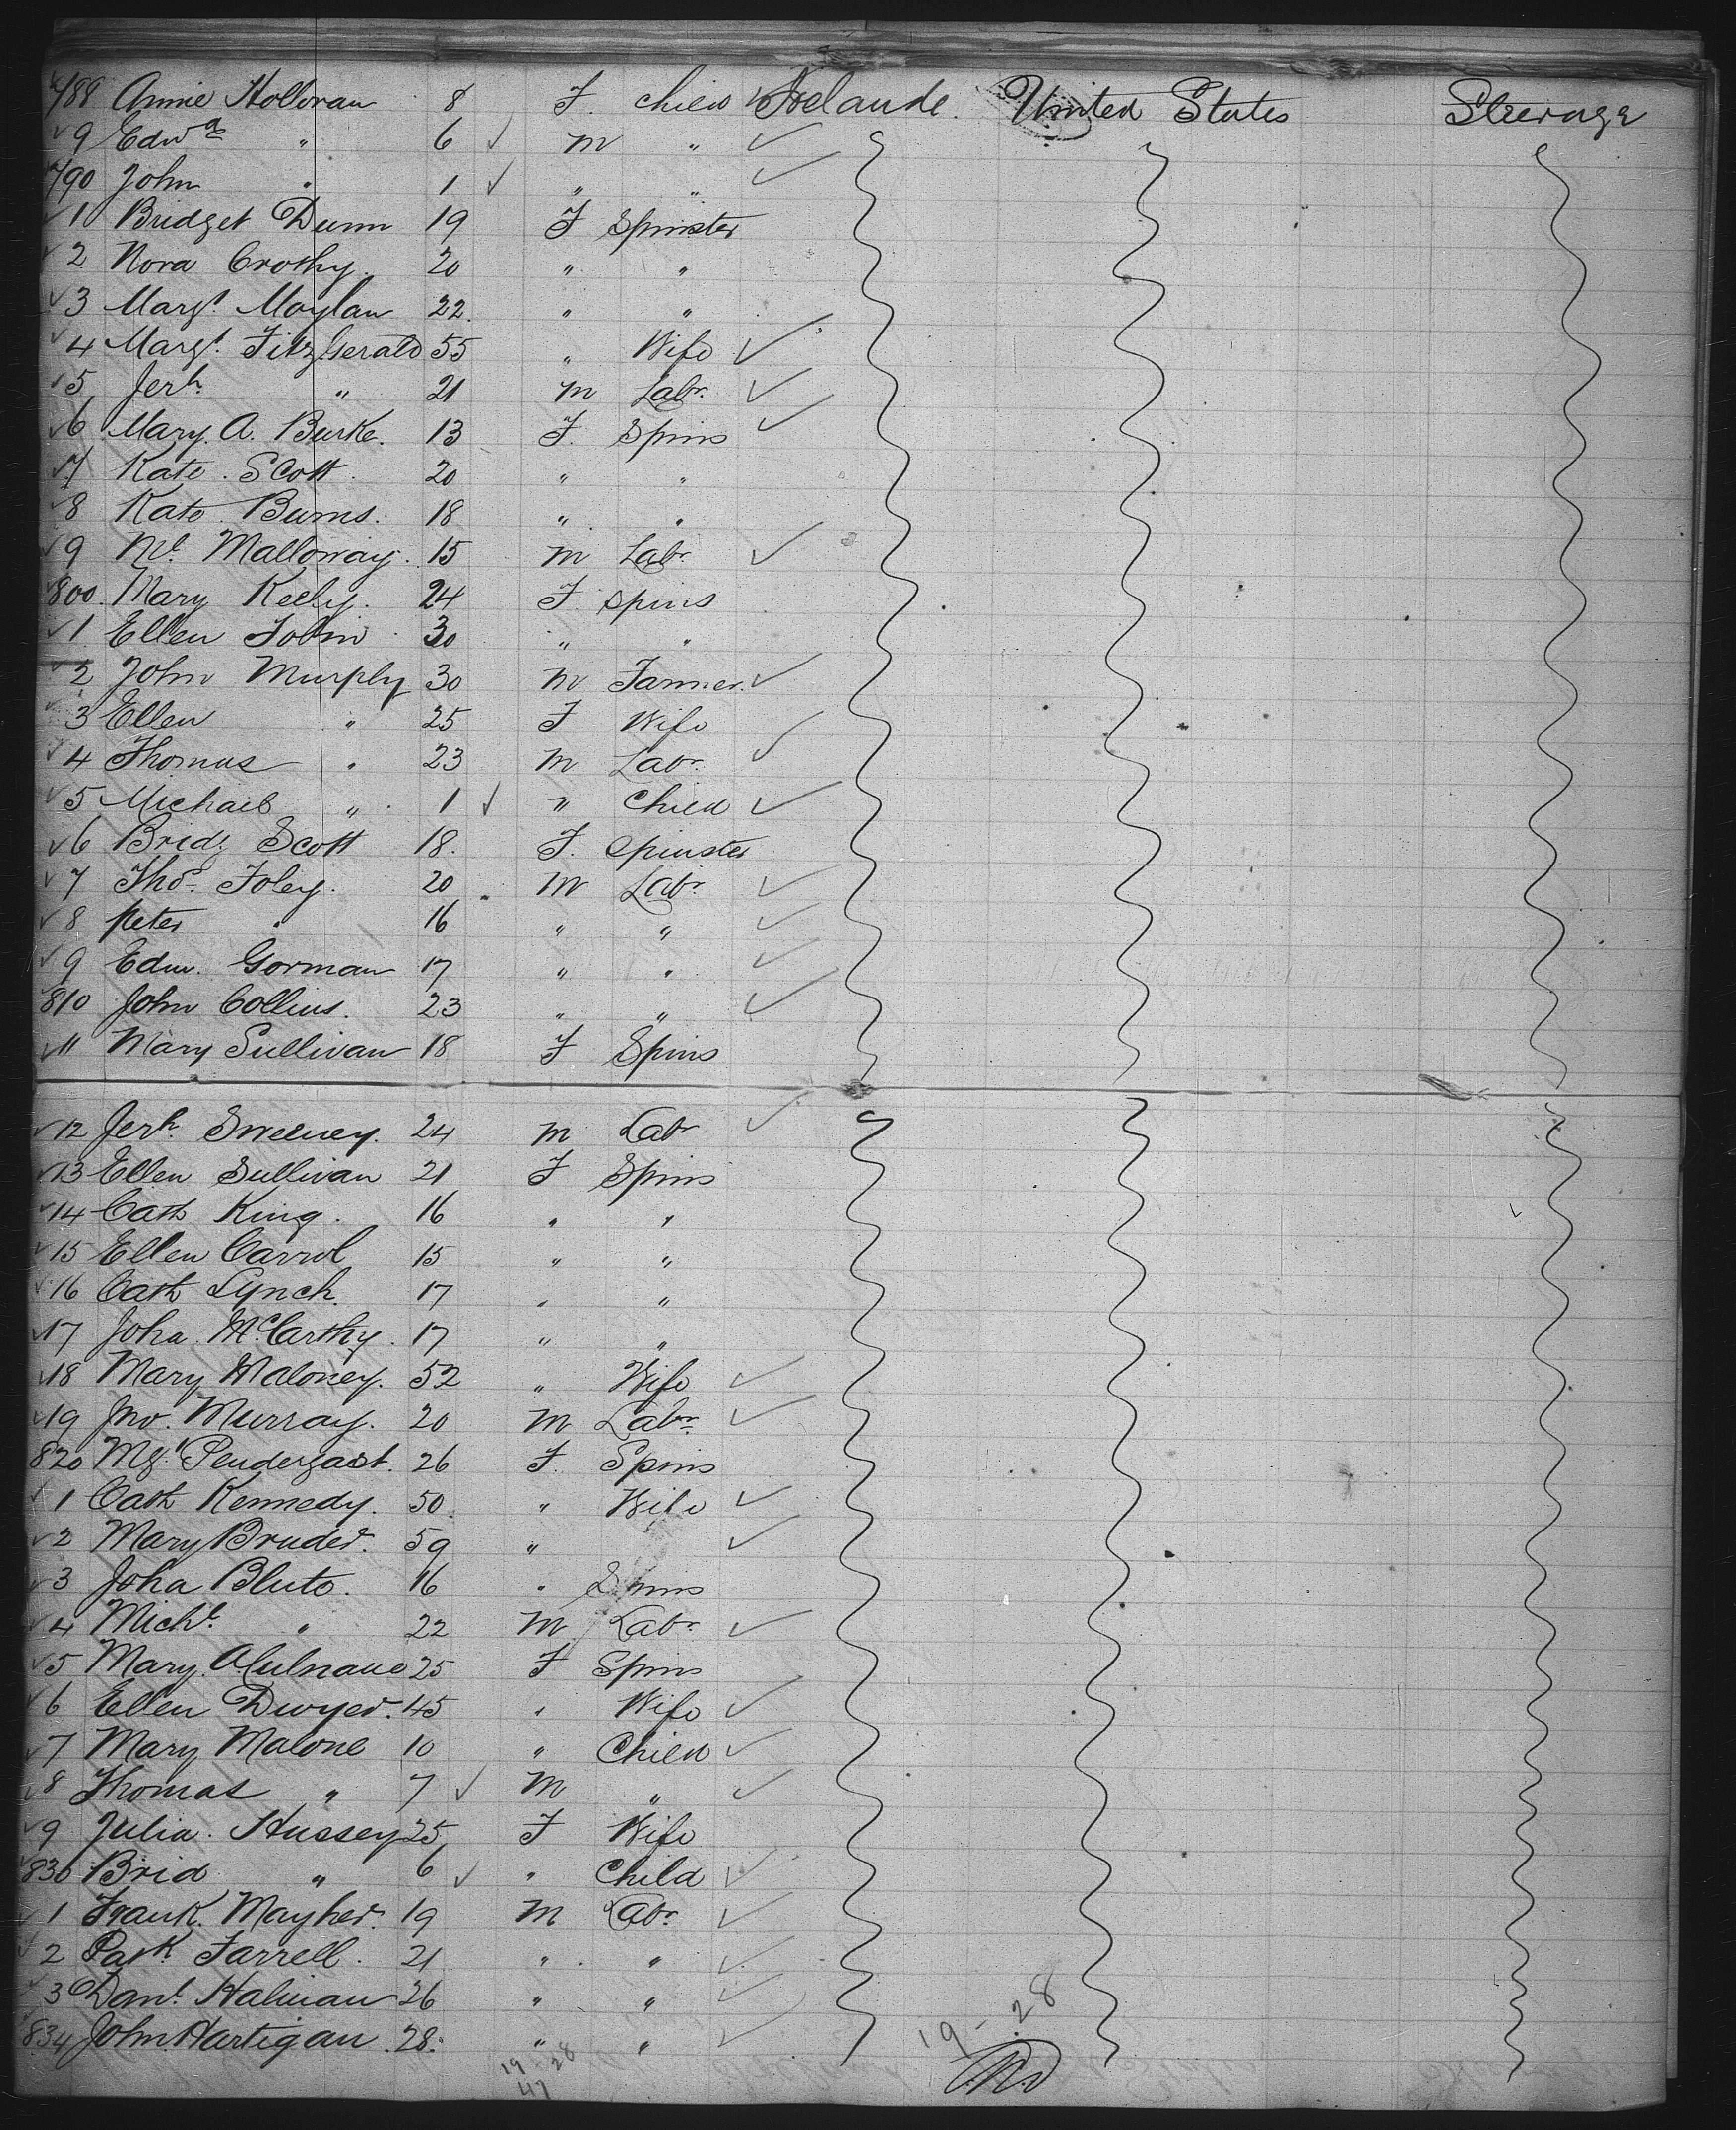 788 Annie Holloran 8 F. Child Irelande. United States Steerage
9 Edwd " 6 M "
790 John " 1 " "
1 Bridget Dunn 19 F Spinster
2 Nora Crothy. 20 " "
3 Margt. Moylan 22. " "
4 Margt. FitzGerald 55 " Wife
5 Jerh. " 21 M Labr.
6 Mary. A. Burke. 13 F. Spins
7 Kate. Scott. 20 " "
8 Kate. Burns. 18 " "
9 Malloway. 15 M Labr
800. Mary Keely. 24 F. Spins
1 Ellen Tobin 30 " "
2 John Murphy 30 M Farmer.
3 Ellen " 25 F Wife
4 Thomas " 23 M Labr.
5 Michael " 1 " Child
6 Bridg Scott 18. F. Spinster
7 Thos. Foley. 20 M Labr.
8 Peter " 16 " "
9 Edw. Gorman 17 " "
810 John Collins. 23 " "
11 Mary Sullivan 18 F Spins
12 Jerh. Sweeney. 24 M Labr
13 Ellen Sullivan 21 F Spins
14 Cath King. 16 " "
15 Ellen Carrol 15 " "
16 Cath Lynch. 17 " "
17 Joha. McCarthy. 17 " "
18 Mary Maloney. 52 " Wife
19 Jno. Murray. 20 M Labr.
820 Mgt Pendergast. 26 F. Spins
1 Cath Kennedy. 50. " Wife
2 Mary Bruder. 59 "
3 Joha Blute. 16 " Spins
4 Michl. " 22 M Labr.
5 Mary. 25 F Spins
6 Ellen Dwyer. 45 " Wife
7 Mary Malone 10 " Child
8 Thomas " 7 M "
9 Julia. Hussey 25 F Wife
830 Brid " 6 " Child
1 Frank. Mayher. 19 M Labr.
2 Patk. Farrell. 21 " "
3 Danl. Halinan 26 " "
834 John Hartigan. 28. " "
19 - 28
19 28
47